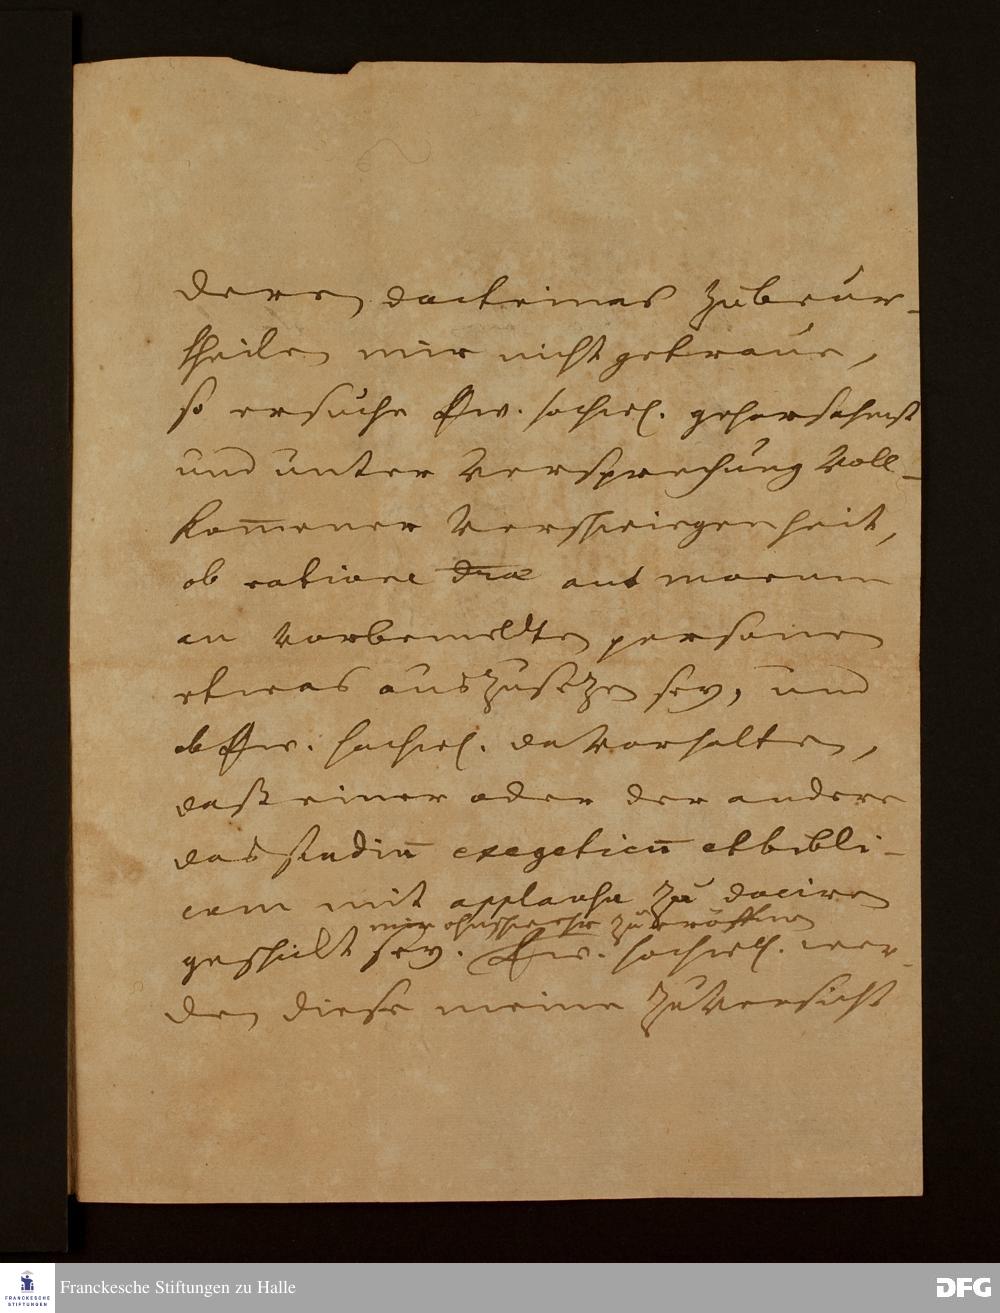 deren doctrinas zu beur-
theilen mir nicht getraue,
so ersuche Ew. hochw. gehorsahmst
und unter Versprechung Voll-
kom̅ener Verschwiegenheit,
ob ratione d̅r̅æ aut morum
an Vorbemeldten personen
etwas auszusezen sey, und
ob Ew. hochw. da Vorhalten,
daß einer oder der andere
das studiu̅ exegeticu̅ et bibli-
cum mit applausu zu dociren
mir ohnschwehr zu eröffnen
geschickt sey. Ew. hochw. wer-
den diese meine ZuVersicht
FRANCKESCHE
STIFTUNGEN
Franckesche Stiftungen zu Halle
DFG